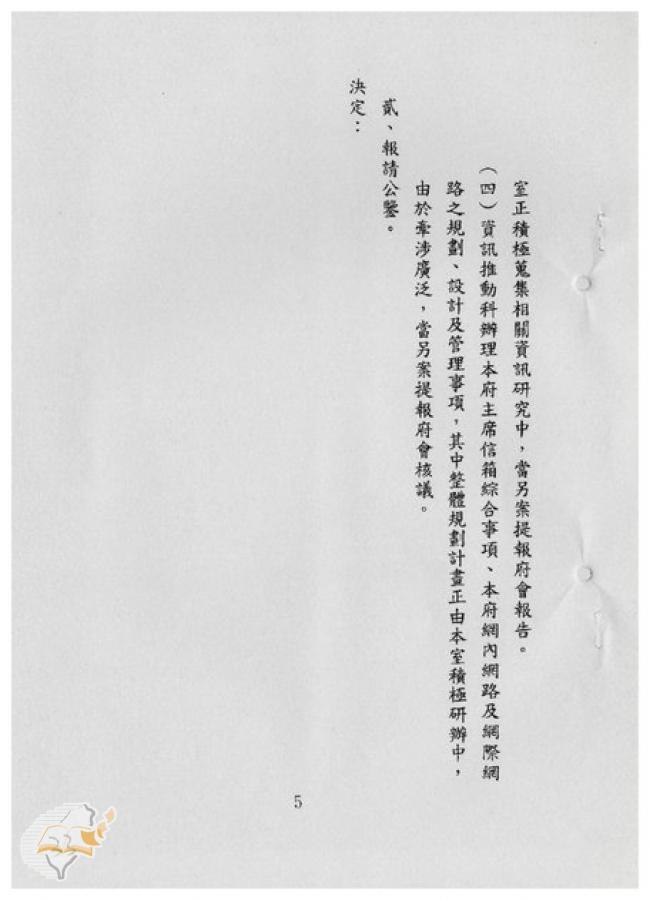 室正積極蒐集相關資訊研究中，當另案提報府會報告。
（四）資訊推動科辦理本府主席信箱綜合事項、本府網內網路及網際網
路之規劃、設計及管理事項，其中整體規劃計畫正由本室積極研辦中，
由於牽涉廣泛，當另案提報府會核議。
貳、報請公鑒。
決定：
5